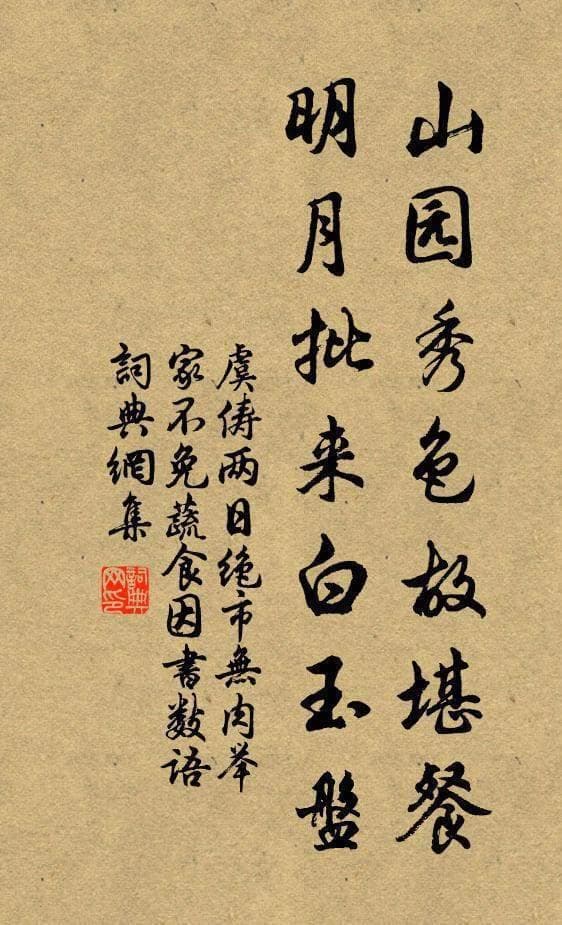 山园秀色故堪餐
明月批来白玉盤
虞俦两日绝市無肉举
家不免蔬食因書数语
詞典網集
詞典网印